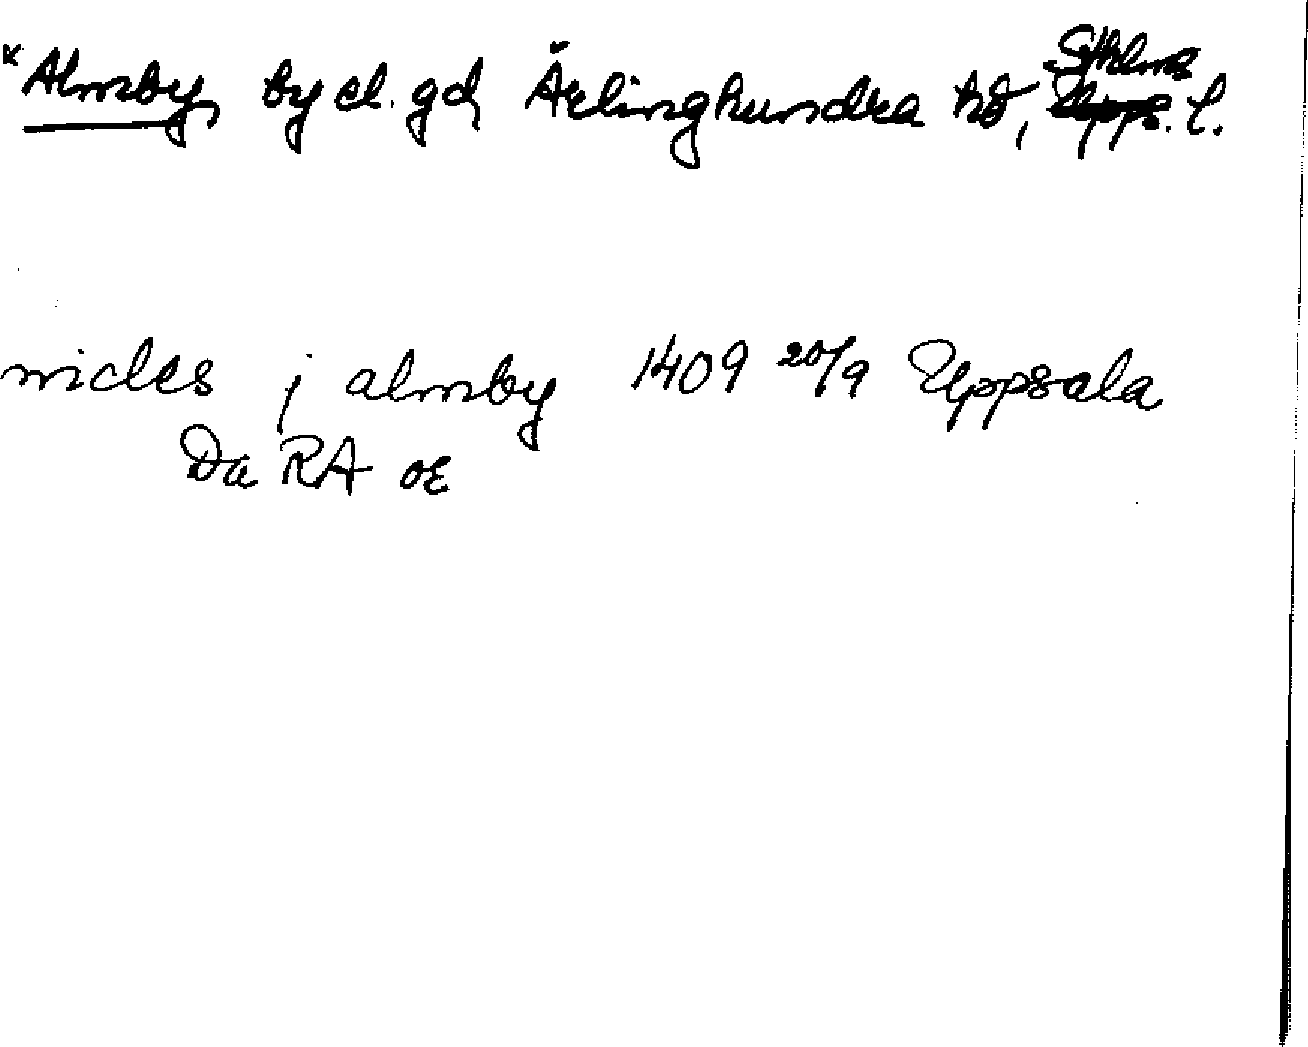 *Almby, by el. gd, Ärlinghundra hd, Sthlms l.
nicles j almby 1409 20/9 Uppsala
Da RA oE